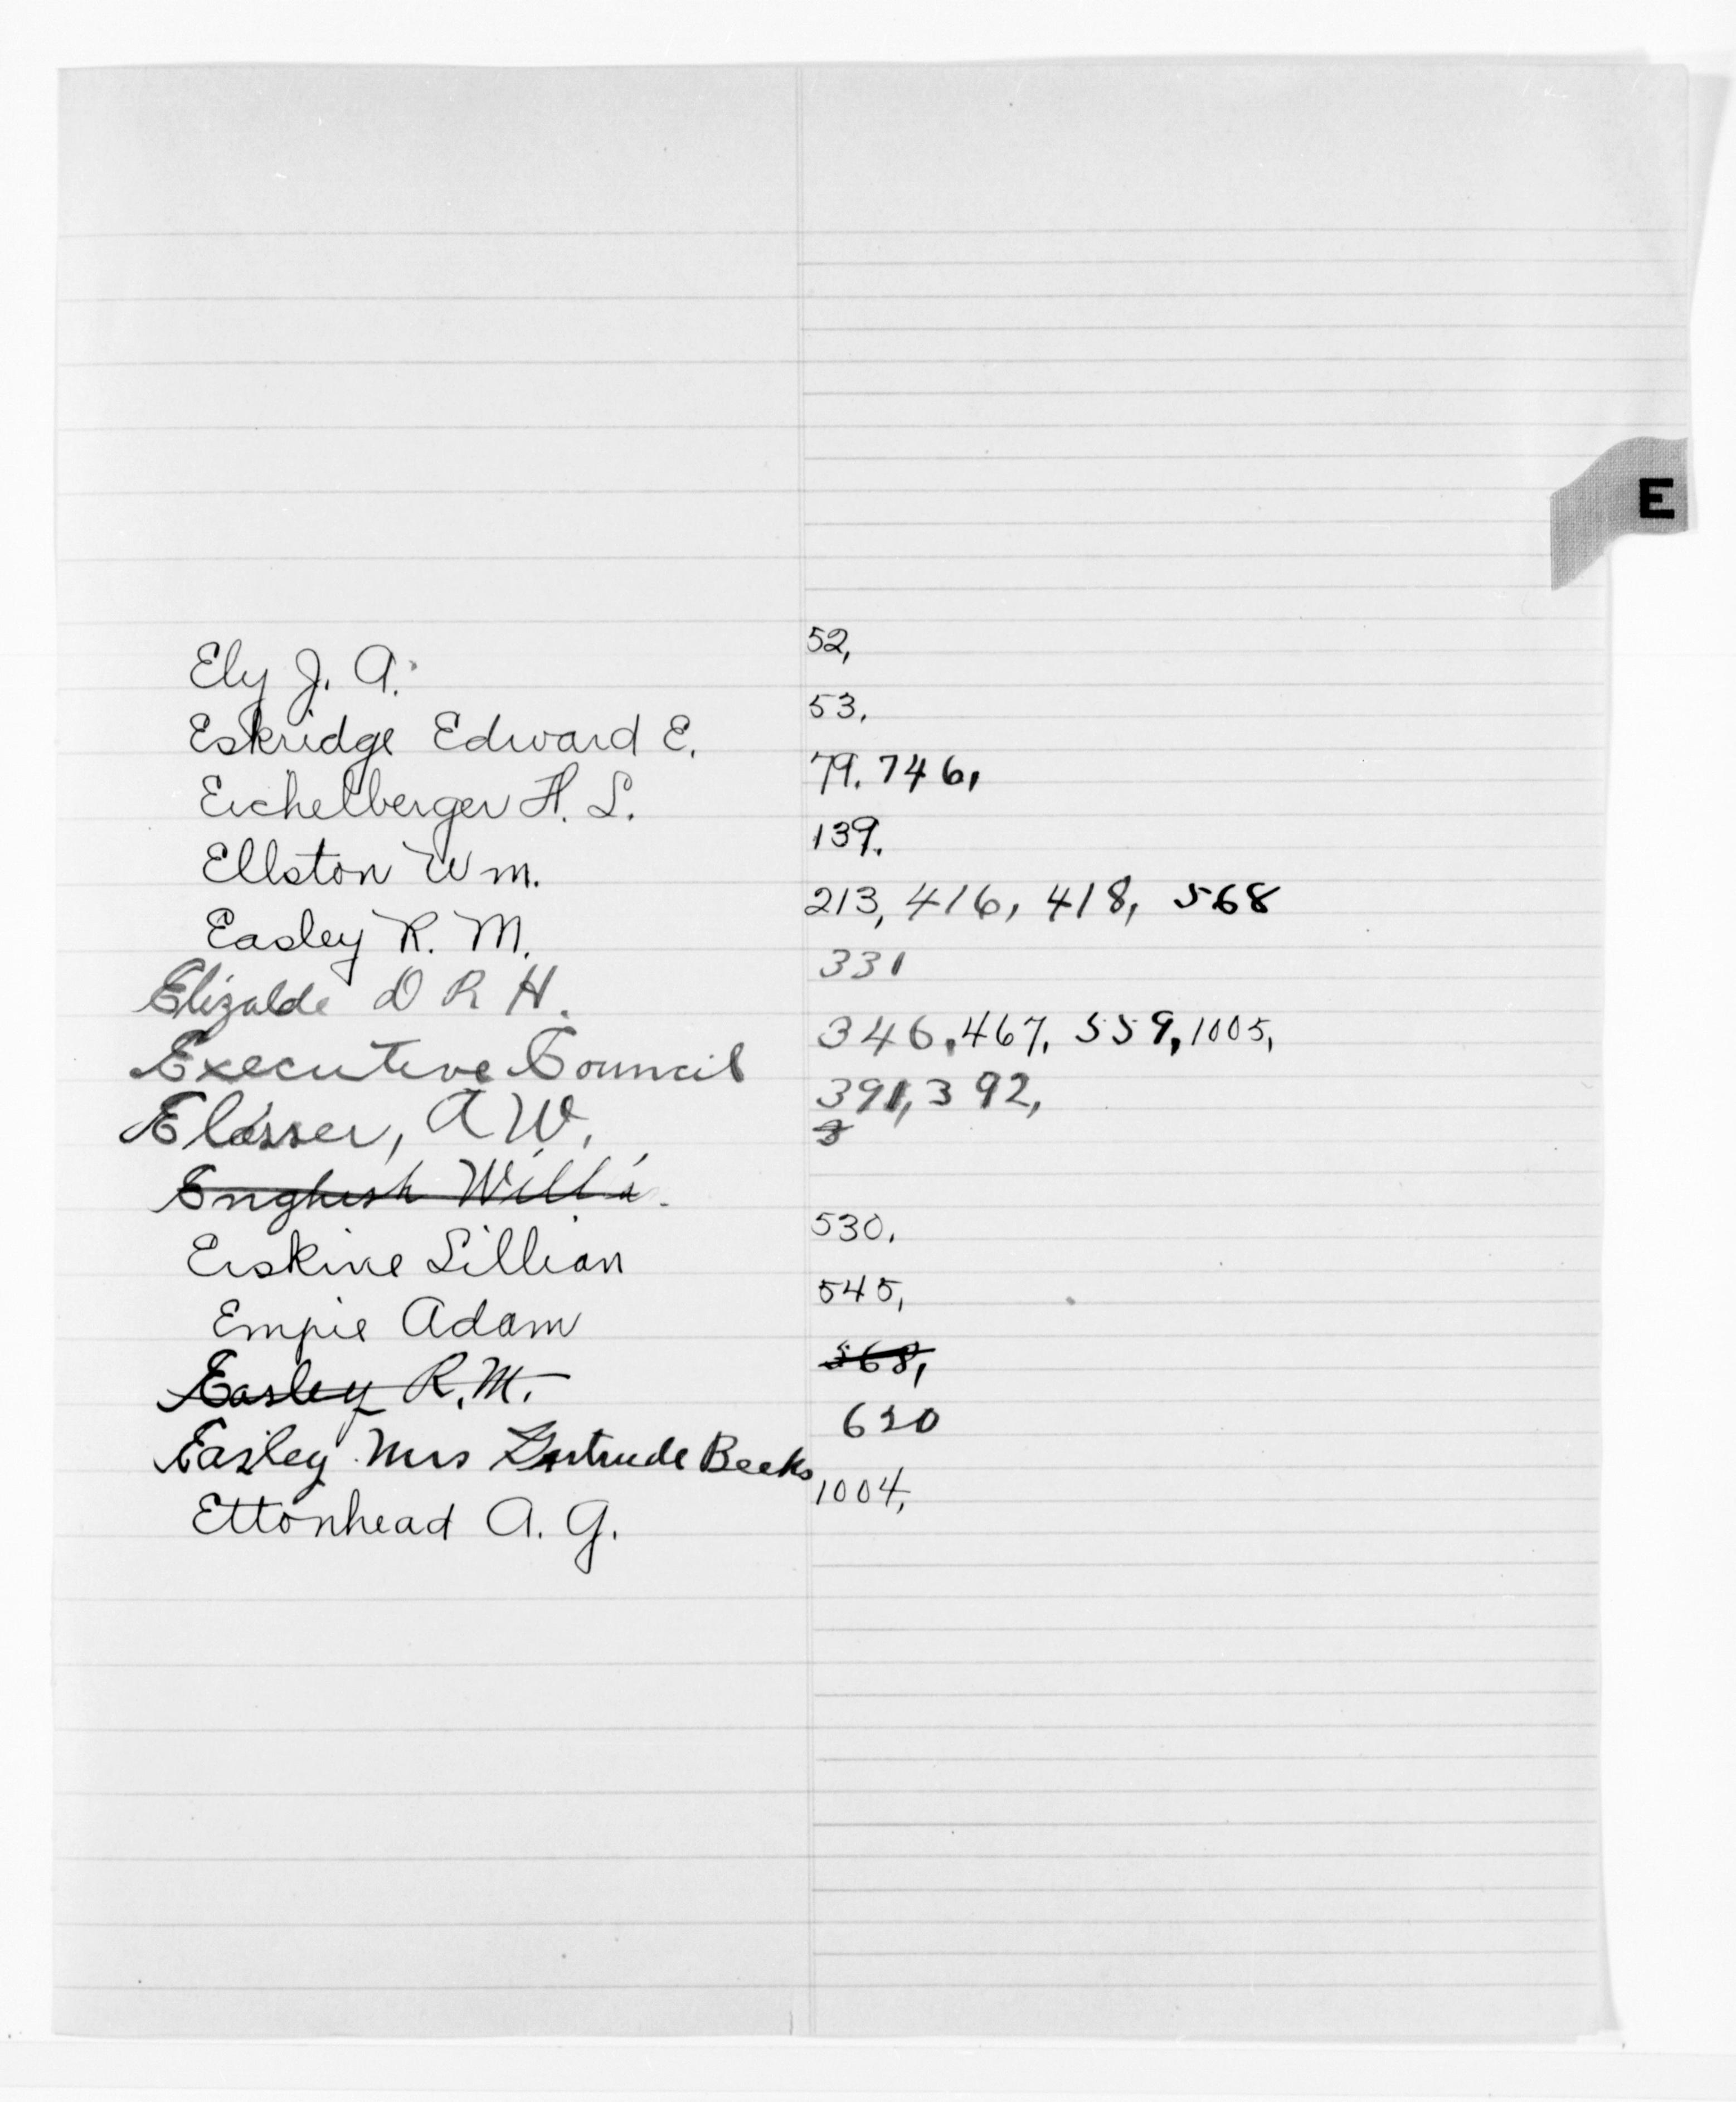 E
Ely J. A. 52,
Eskridge Edward E. 53.
Eichelberger H. L. 79. 746,
Ellston Wm. 139.
Easley R. M. 213, 416, 418, 568
Elizalde D R H. 331
Executive Council 346, 467. 559, 1005,
Elasser, A W. 391, 392,
3
English Will
Erskine Lillian 530.
Empie Adam 545,
Easley R. M. 568,
Easley Mrs Gertrude Beeks 620
Ettonhead A. G. 1004,